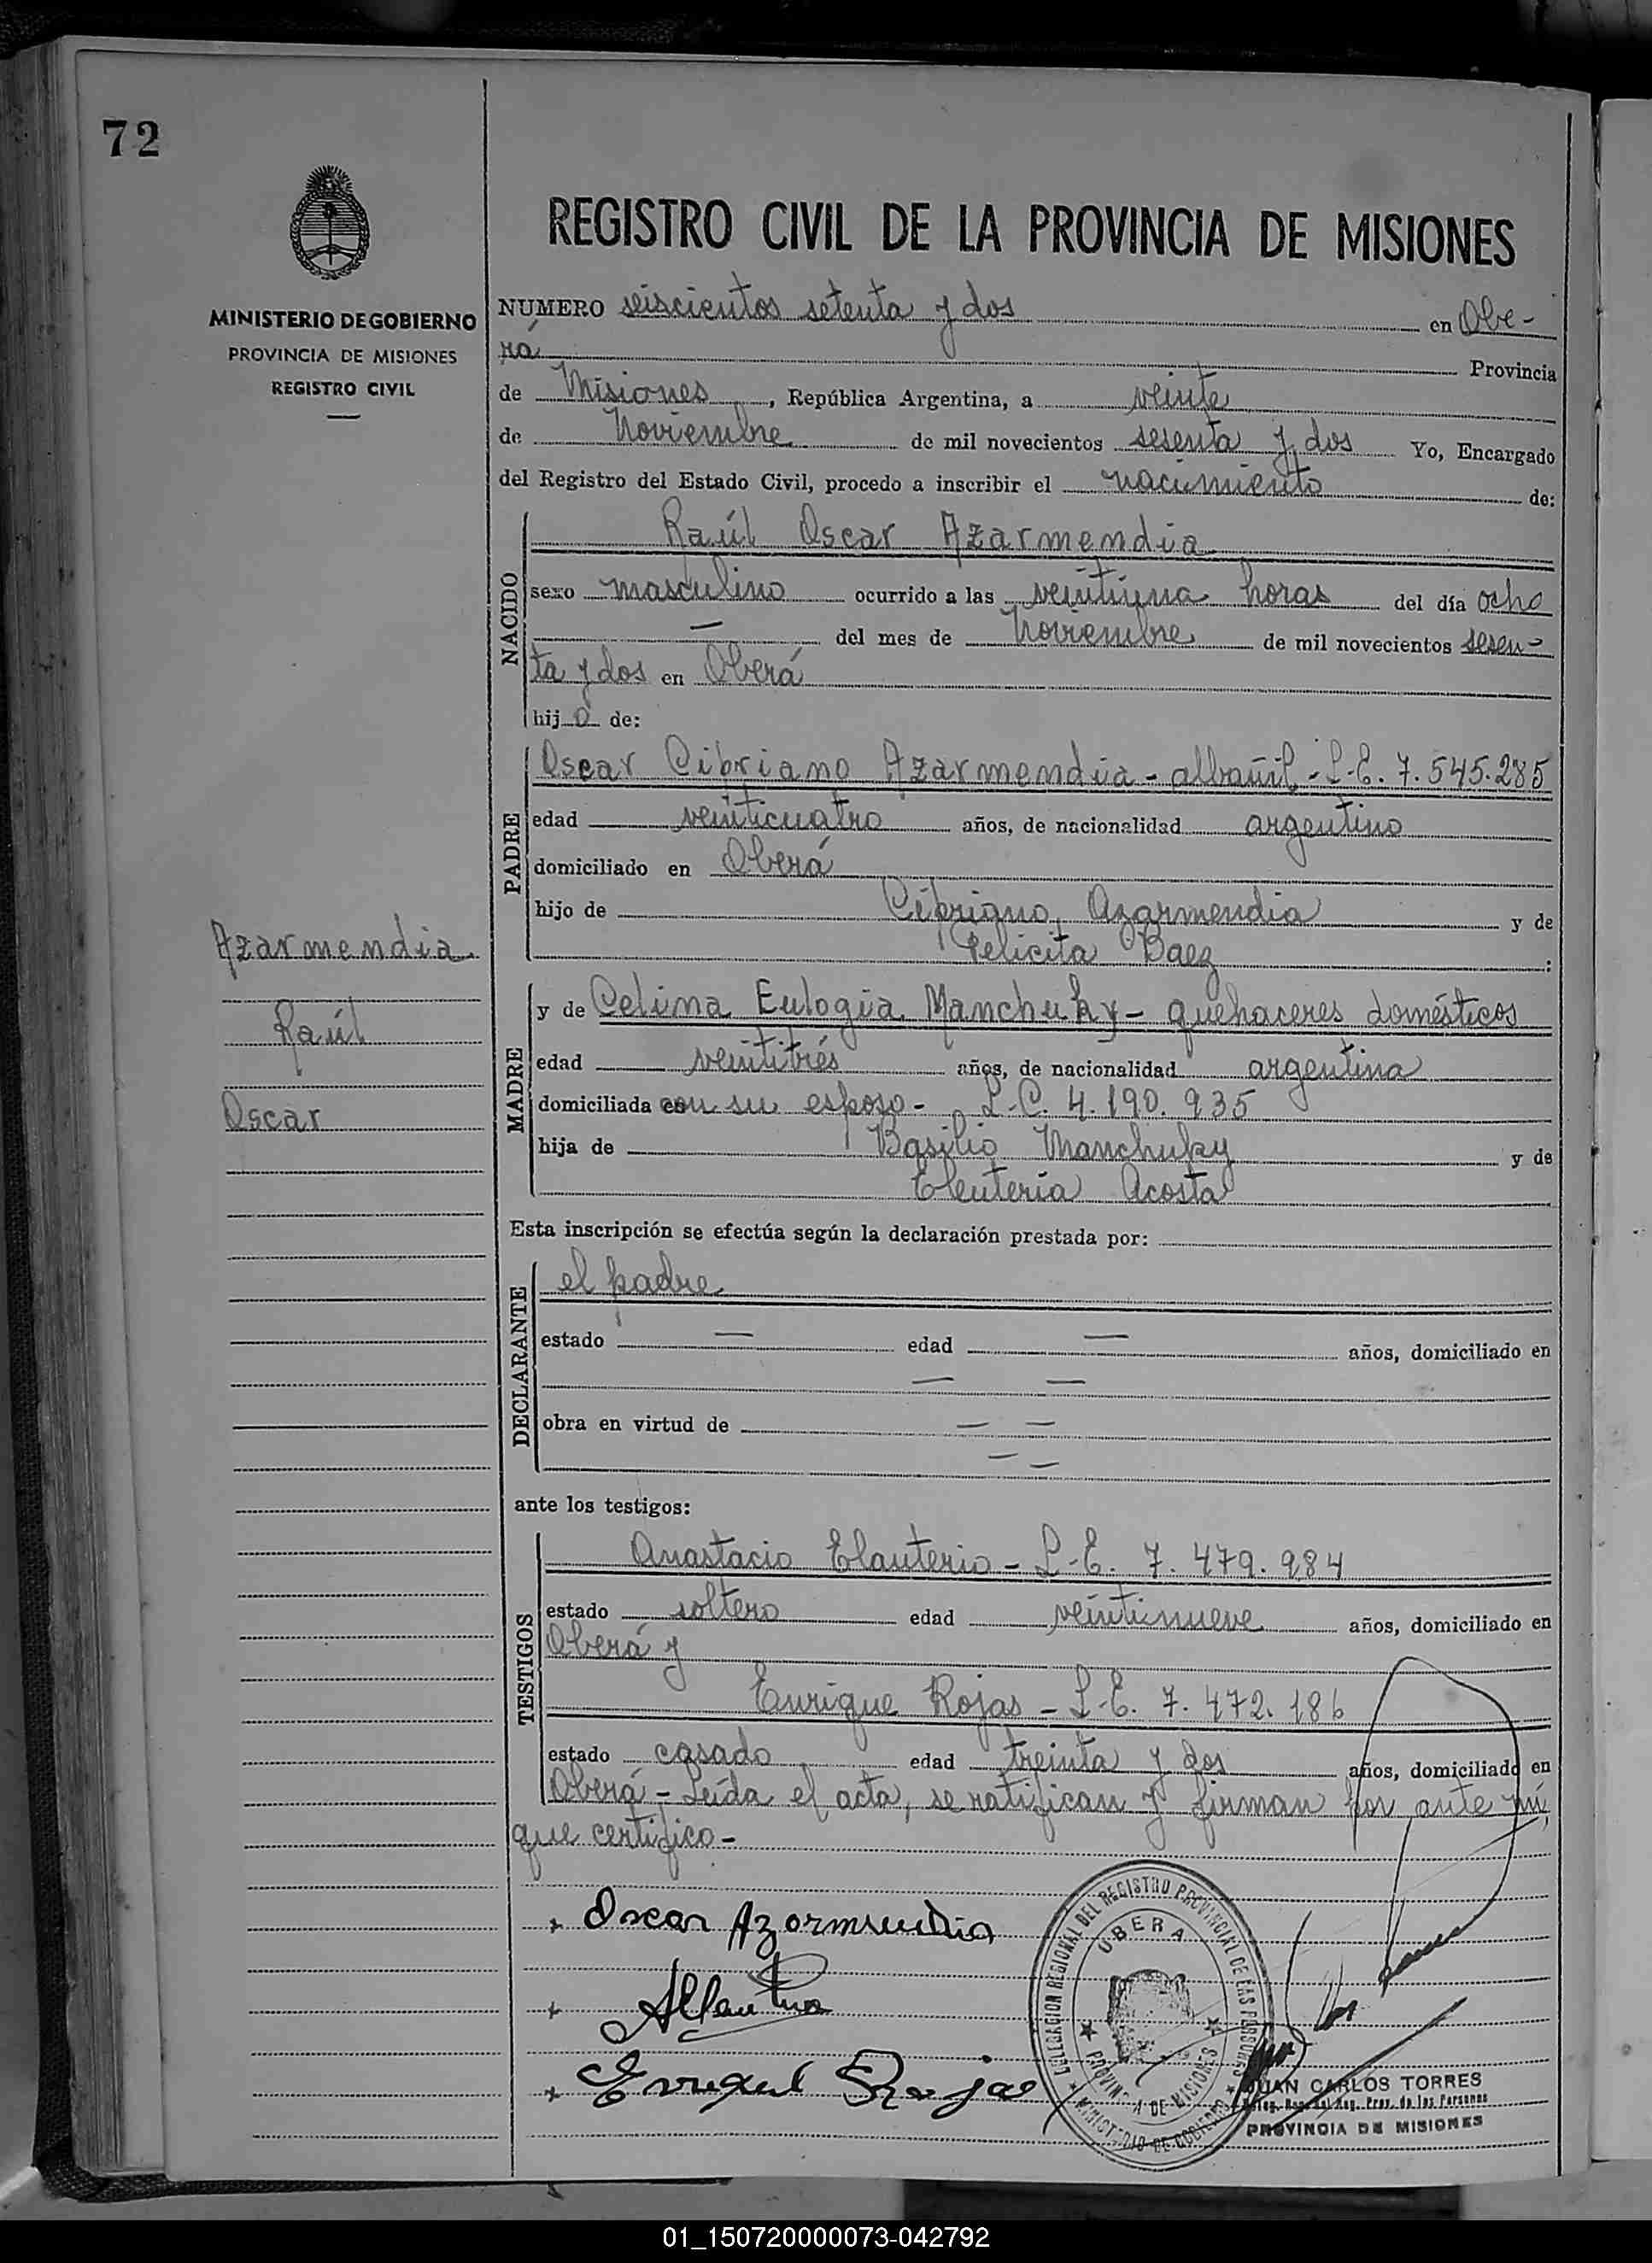 72
MINISTERIO DE GOBIERNO
PROVINCIA DE MISIONES
REGISTRO CIVIL
REGISTRO CIVIL DE LA PROVINCIA DE MISIONES
NUMERO seiscientos setenta y dos en Obe-
rá Provincia
de Misiones, República Argentina, a veinte
de Noviembre de mil novecientos sesenta y dos Yo, Encargado
del Registro del Estado Civil, procedo a inscribir el nacimiento de:
NACIDO
Raúl Oscar Azarmendia
sexo masculino ocurrido a las veintiuna horas del día ocho
— del mes de Noviembre de mil novecientos sesen-
ta y dos en Oberá
hijo de:
PADRE
Oscar Cibriano Azarmendia - albañil - L.E. 7.545.285
edad veinticuatro años, de nacionalidad argentino
domiciliado en Oberá
hijo de Cibriano Azarmendia y de
Felicita Baez :
Azarmendia
Raúl
Oscar
MADRE
y de Celina Eulogia Manchuky - quehaceres domésticos
edad veintitrés años, de nacionalidad argentina
domiciliada con su esposo - L.C. 4.190.935
hija de Basilio Manchuky y de
Eleuteria Acosta
Esta inscripción se efectúa según la declaración prestada por:
DECLARANTE
el padre
estado — edad — años, domiciliado en
— —
obra en virtud de — —
— —
ante los testigos:
TESTIGOS
Anastacio Elauterio - L.E. 7.479.984
estado soltero edad veintinueve años, domiciliado en
Oberá y
Enrique Rojas - L.E. 7.472.186
estado casado edad treinta y dos años, domiciliado en
Oberá - Leída el acta, se ratifican y firman por ante mí,
que certifico -
Oscar Azarmendia
Enrique Rojas
DELEGACION REGIONAL DEL REGISTRO PROVINCIAL DE LAS PERSONAS
OBERA
PROVINCIA DE MISIONES
MINISTERIO DE GOBIERNO
JUAN CARLOS TORRES
Deleg. Reg. del Reg. Prov. de las Personas
PROVINCIA DE MISIONES
01_150720000073-042792